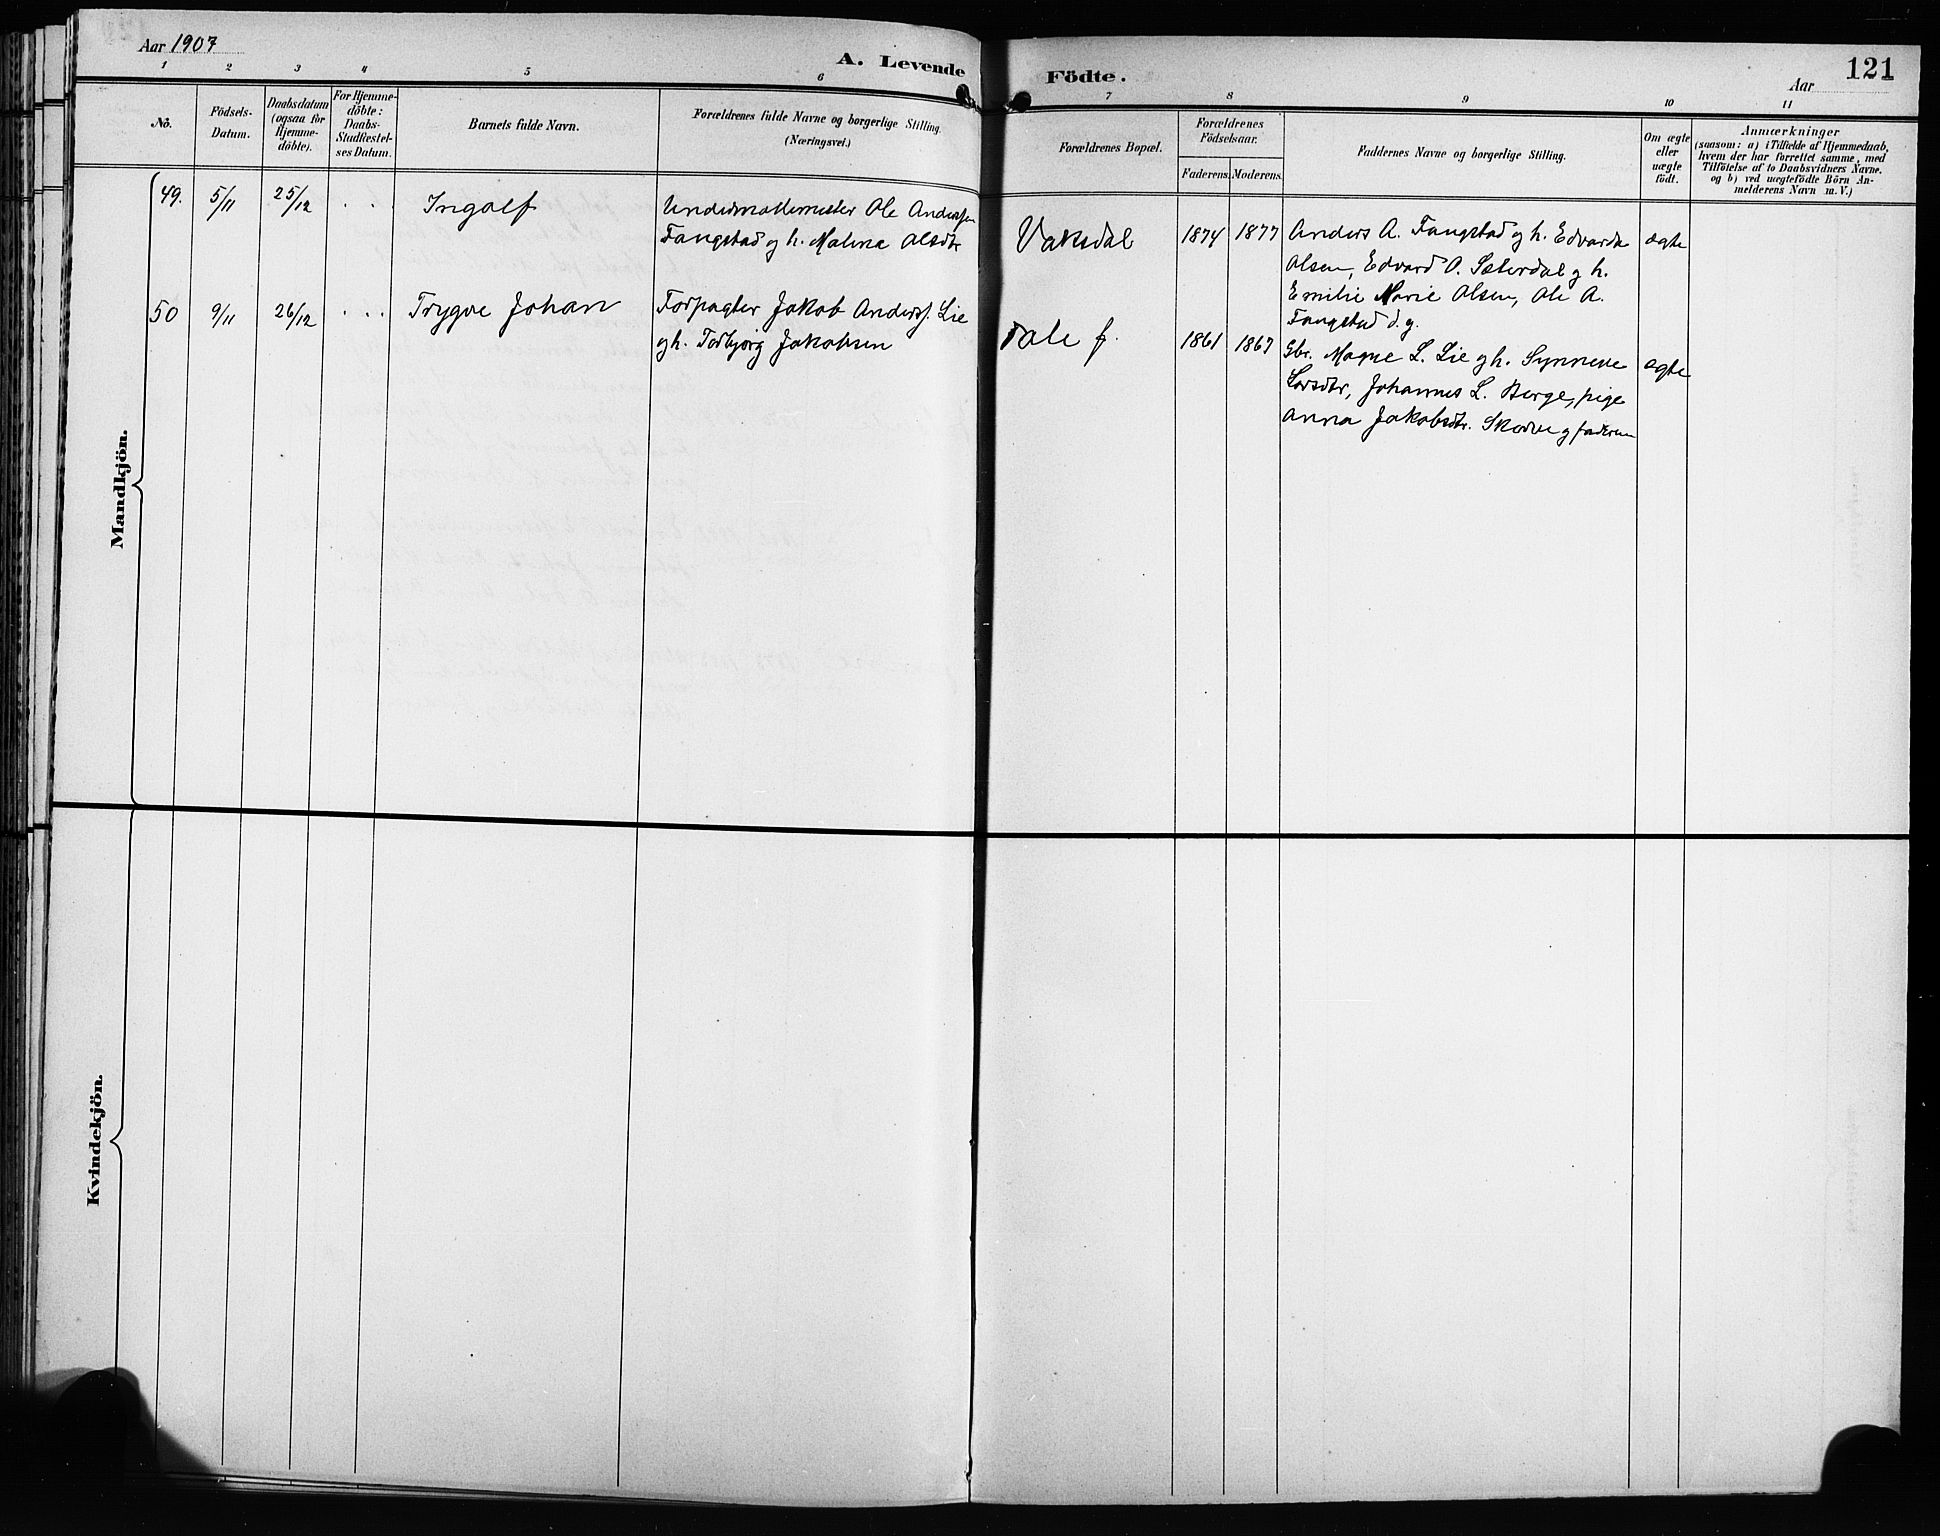 Aar 1907
A. Levende Födte.
Aar
121
1 2 3 4 5 6 7 8 9 10 11
No.
Födsels-
Datum.
Daabsdatum
(ogsaa for
Hjemme-
döbte).
For Hjemme-
döbte:
Daabs-
Stadfæstel-
ses Datum.
Barnets fulde Navn.
Forældrenes fulde Navne og borgerlige Stilling.
(Næringsvei.)
Forældrenes Bopæl.
Forældrenes
Födselsaar.
Faderens. Moderens.
Faddernes Navne og borgerlige Stilling.
Om ægte
eller
uægte
födt.
Anmærkninger
(saasom: a) i Tilfælde af Hjemmedaab,
hvem der har forrettet samme, med
Tilföielse af to Daabsvidners Navne.
og b) ved uægtefödte Börn An-
melderens Navn m. V.)
Mandkjön.
49. 5/11 25/12 . . . Ingolf
Undermøllemester Ole Anderssen
Fangstad og h. Malina Olsdtr
Vaksdal 1874 1877
Anders A. Fangstad og h. Edvarda
Olsen, Edvard O. Sæterdal og h.
Emilie Marie Olsen, Ole A.
Fangstad d.y.
ægte
50 9/11 26/12 . . . Trygve Johan
Forpagter Jakob Anderss. Lie
og h. Torbjørg Jakobsen
Dale f. 1861 1867
Gbr. Magne L. Lie og h. Synneve
Larsdtr, Johannes L. Berge, pige
Anna Jakobsdtr. Skodve og faderen
ægte
Kvindekjön.